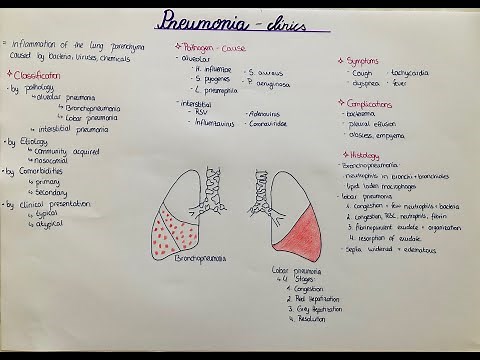 Pneumonia - clinics
= inflammation of the lung parenchyma
caused by bacteria, viruses, chemicals
Classification
- by pathology
↳ alveolar pneumonia
↳ Bronchopneumonia
↳ Lobar pneumonia
↳ interstitial pneumonia
- by Etiology
↳ community acquired
↳ nosocomial
- by Comorbidities
↳ primary
↳ secondary
- by Clinical presentation
↳ typical
↳ atypical
Pathogen - cause
- alveolar
- H. influenzae - S. aureus
- S. pyogenes - P. aeruginosa
- L. pneumophila
- interstitial
- RSV - Adenovirus
- Influenzavirus - Coronaviridae
Bronchopneumonia
Lobar pneumonia
↳ 4 Stages:
1. Congestion
2. Red Hepatization
3. Grey Hepatization
4. Resolution
Symptoms
- Cough - tachycardia
- dyspnea - fever
Complications
- bacteremia
- pleural effusion
- abscess, empyema
Histology
- Bronchopneumonia:
neutrophils in bronchi + bronchioles
lipid laden macrophages
- lobar pneumonia
1. Congestion + few neutrophils + bacteria
2. congestion, RBC, neutrophils, fibrin
3. fibrinopurulent exudate + organization
4. resorption of exudate
- Septa widened + edematous